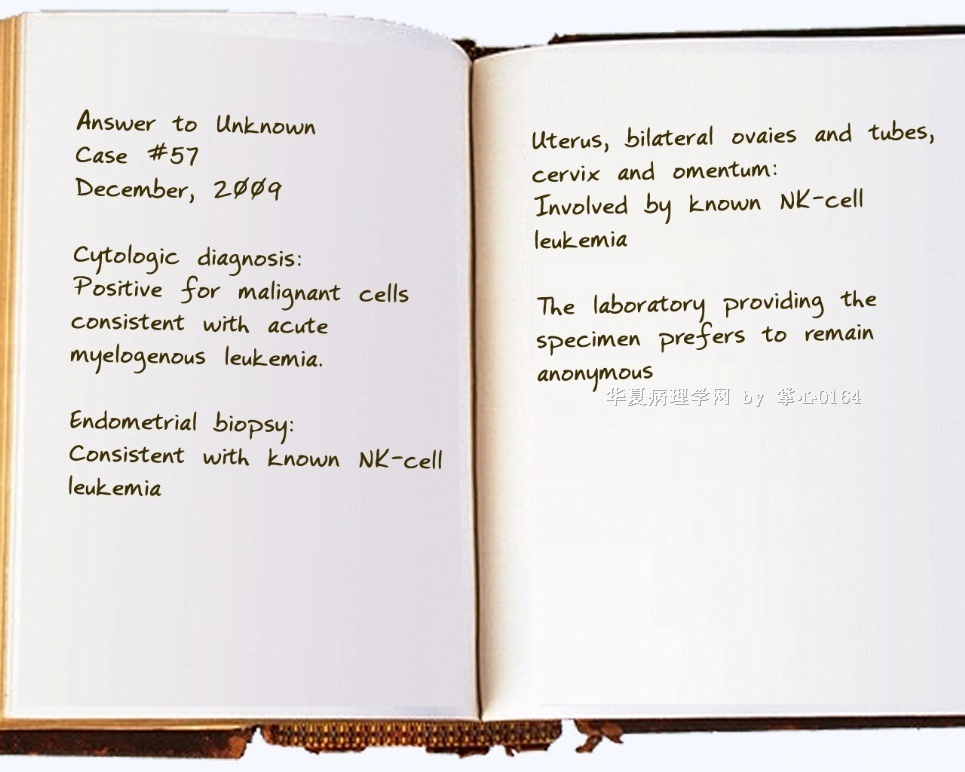 Answer to Unknown
Case #57
December, 2009
Cytologic diagnosis:
Positive for malignant cells
consistent with acute
myelogenous leukemia.
Endometrial biopsy:
Consistent with known NK-cell
leukemia
Uterus, bilateral ovaies and tubes,
cervix and omentum:
Involved by known NK-cell
leukemia
The laboratory providing the
specimen prefers to remain
anonymous
华夏病理学网 by 掌心0164